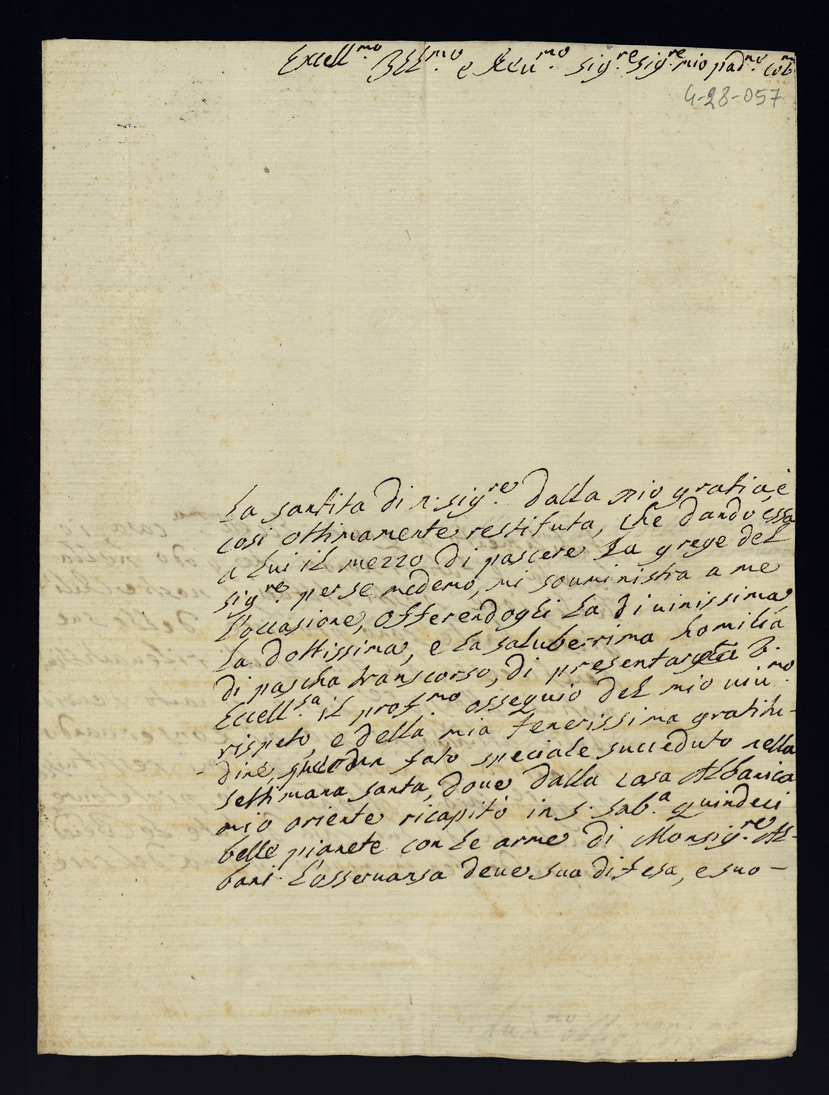 Excell.mo Ill.mo e Reu.mo Sig.re Sig.re mio pad.ne
4-28-057
La santita di n: sig.re dalla mio gratia, è
cosi ottimamente restituta, che dando essa
a lui il mezzo di pascere la grege del
sig.re per se medemo, mi souministra a me
l'occasione, offerendogli la diuinissima,
la dottissima, e la saluberrima homilia
di pascha transcorso, di presentar
Eccell.sa il prof.mo ossequio del mio
rispeto, e della mia tenerissima gratitu-
dine, fato speciale succeduto nella
settimana santa, doue dalla casa Albanica
mio oriente ricapitò in S. Sab.a quindeci
belle pianete con le arme di Monsig.re Al-
bani. L'osseruansa deue sua difesa, e suo-